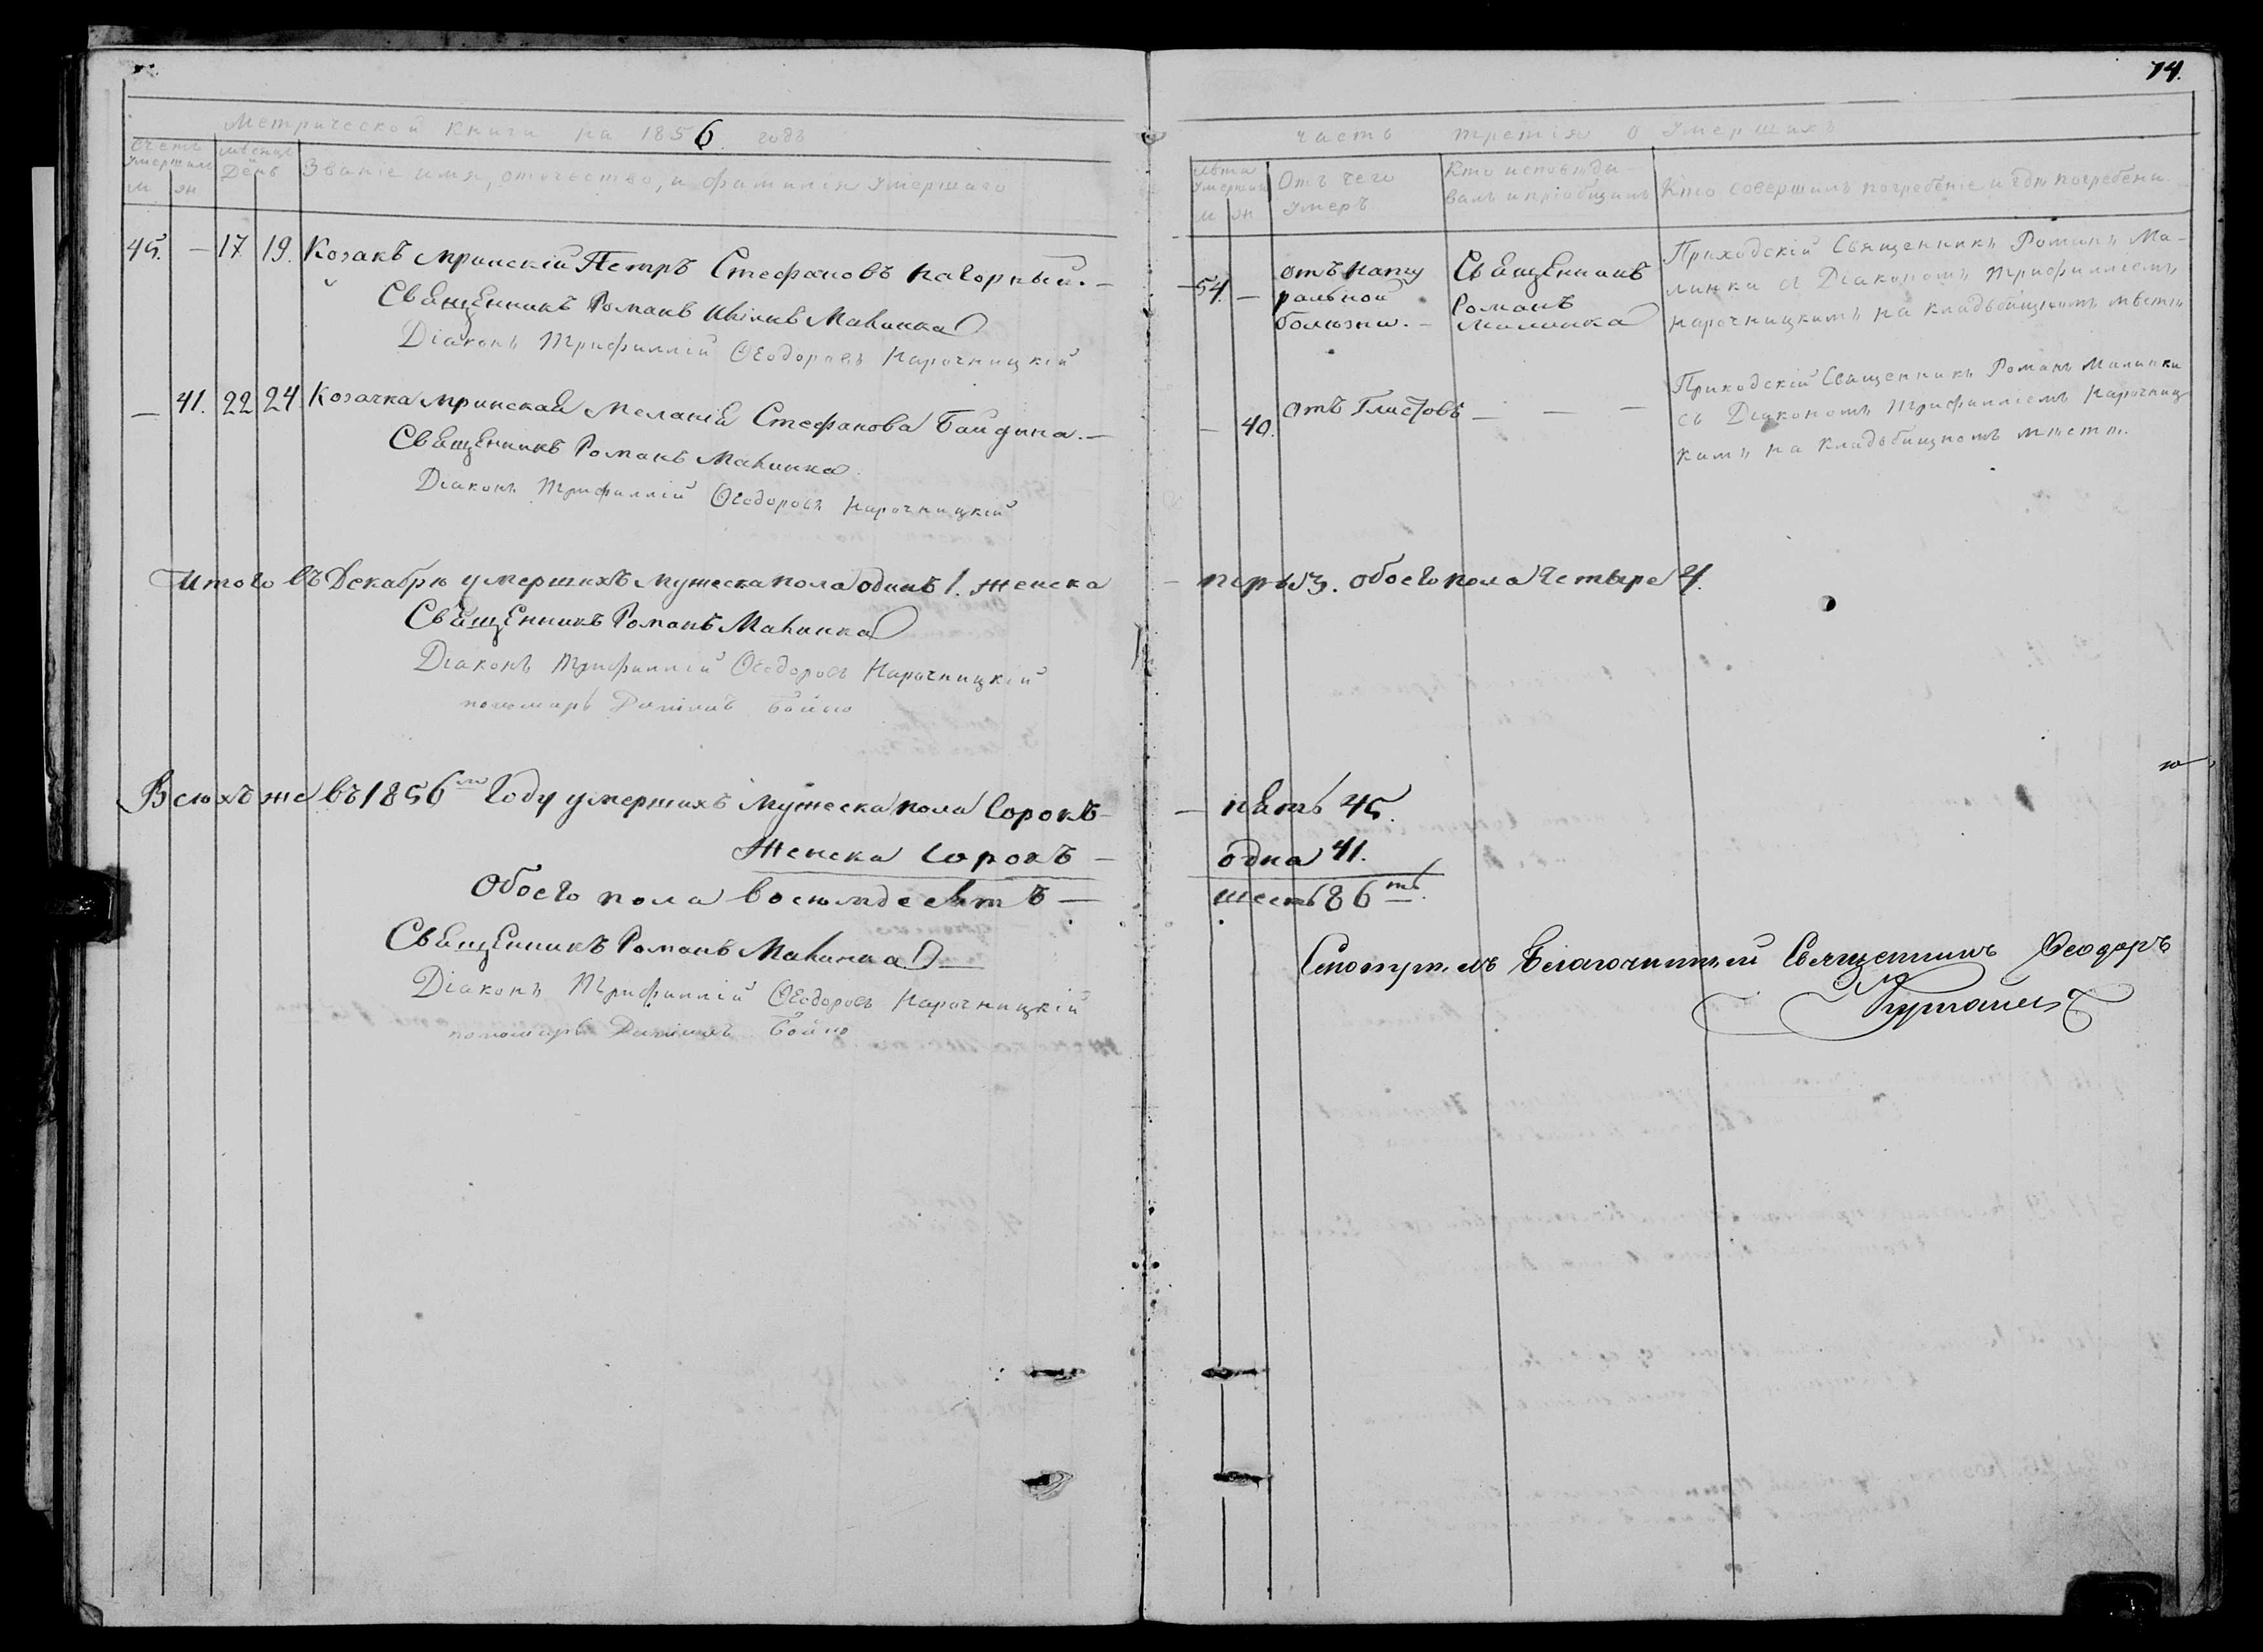 74.
Метрической книги на 1856 годъ
часть третія о умершихъ
Счетъ умершихъ
м
ж
Мѣсяцъ и День
Званіе имя, отчество, и фамилія умершаго
Лѣта умершаго
м
ж
Отъ чего умеръ
Кто исповѣды-
валъ и пріобщилъ
Кто совершилъ погребеніе и гдѣ погребены
45. — 17 19. Козакъ Мринскій Петръ Стефановъ Нагорный. —
Священникъ Романъ Малинка
Діаконъ Трифиллій Ѳеодоровъ Нарочницкій
54. —
отъ нату
ральной
болѣзни. —
Священникъ
Романъ
Малинка
Приходскій Священникъ Романъ Ма-
линка съ Діакономъ Трифилліемъ
Нарочницкимъ на кладбищномъ мѣстѣ
— 41. 22 24 Козачка Мринская Меланія Стефанова Байдина. —
Священникъ Романъ Малинка
Діаконъ Трифиллій Ѳеодоровъ Нарочницкій
— 40.
отъ Глистовъ — — —
Приходскій Священникъ Романъ Малинка
съ Діакономъ Трифилліемъ Нарочниц
кимъ на кладбищномъ мѣстѣ.
Итого въ Декабрѣ умершихъ мужеска пола одинъ 1. женска
— три 3. обоего пола четыре 4.
Священникъ Романъ Малинка
Діаконъ Трифиллій Ѳеодоровъ Нарочницкій
пономарь Даніилъ Бойко
Всѣхъ же въ 1856мъ Году умершихъ мужеска пола сорокъ —
— пять 45.
Женска сорокъ —
одна 41.
Обоего пола восѣмдесятъ —
шесть 86ть.
Священникъ Романъ Малинка
Діаконъ Трифиллій Ѳеодоровъ Нарочницкій
пономарь Даніилъ Бойко
Благочинный Священникъ Ѳеодоръ